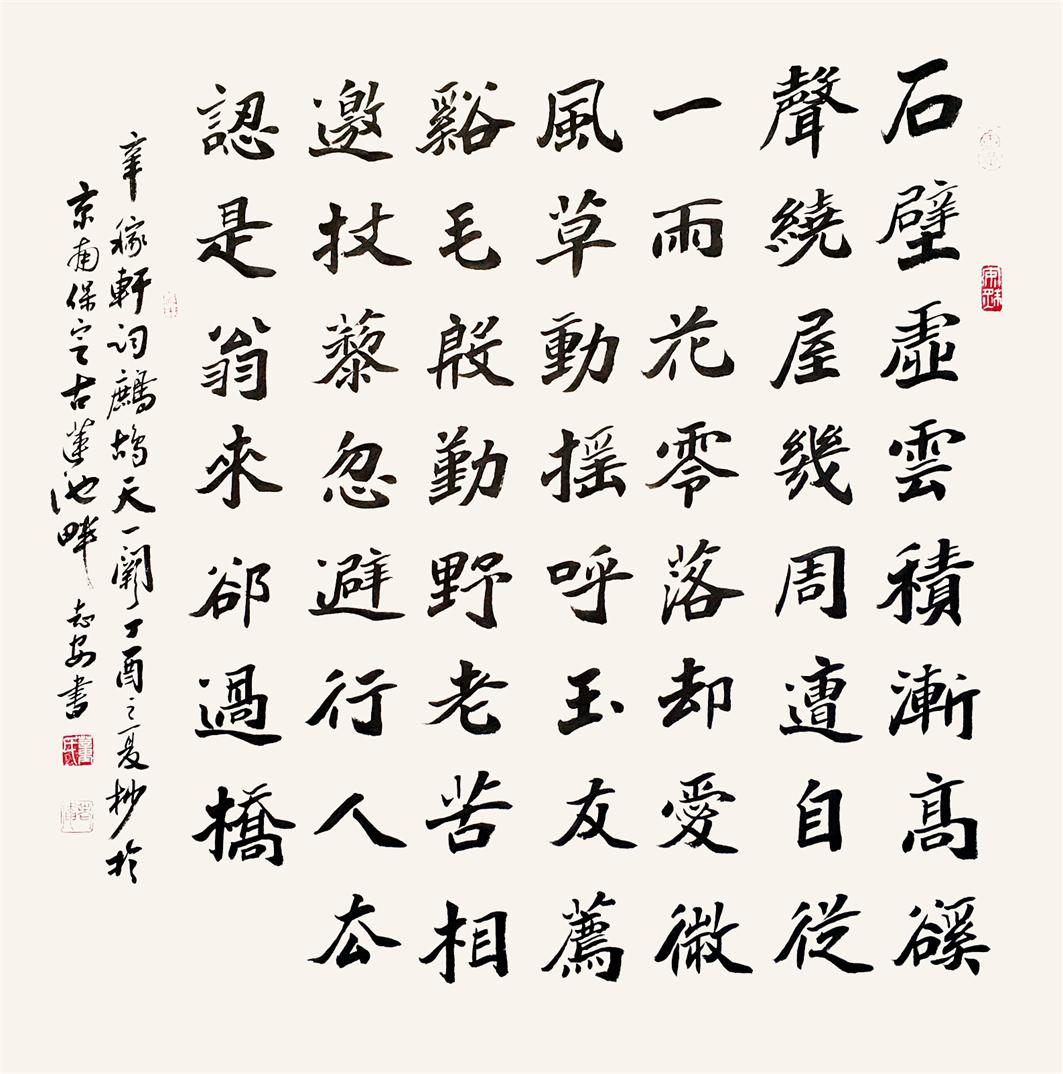 石壁虛雲積漸高谿
聲繞屋幾周遭自從
一雨花零落却愛微
風草動摇呼玉友薦
谿毛殷勤野老苦相
邀杖藜忽避行人去
認是翁來郤過橋
辛稼軒詞鷓鴣天一闋丁酉之夏抄於
京南保定古蓮池畔志安書